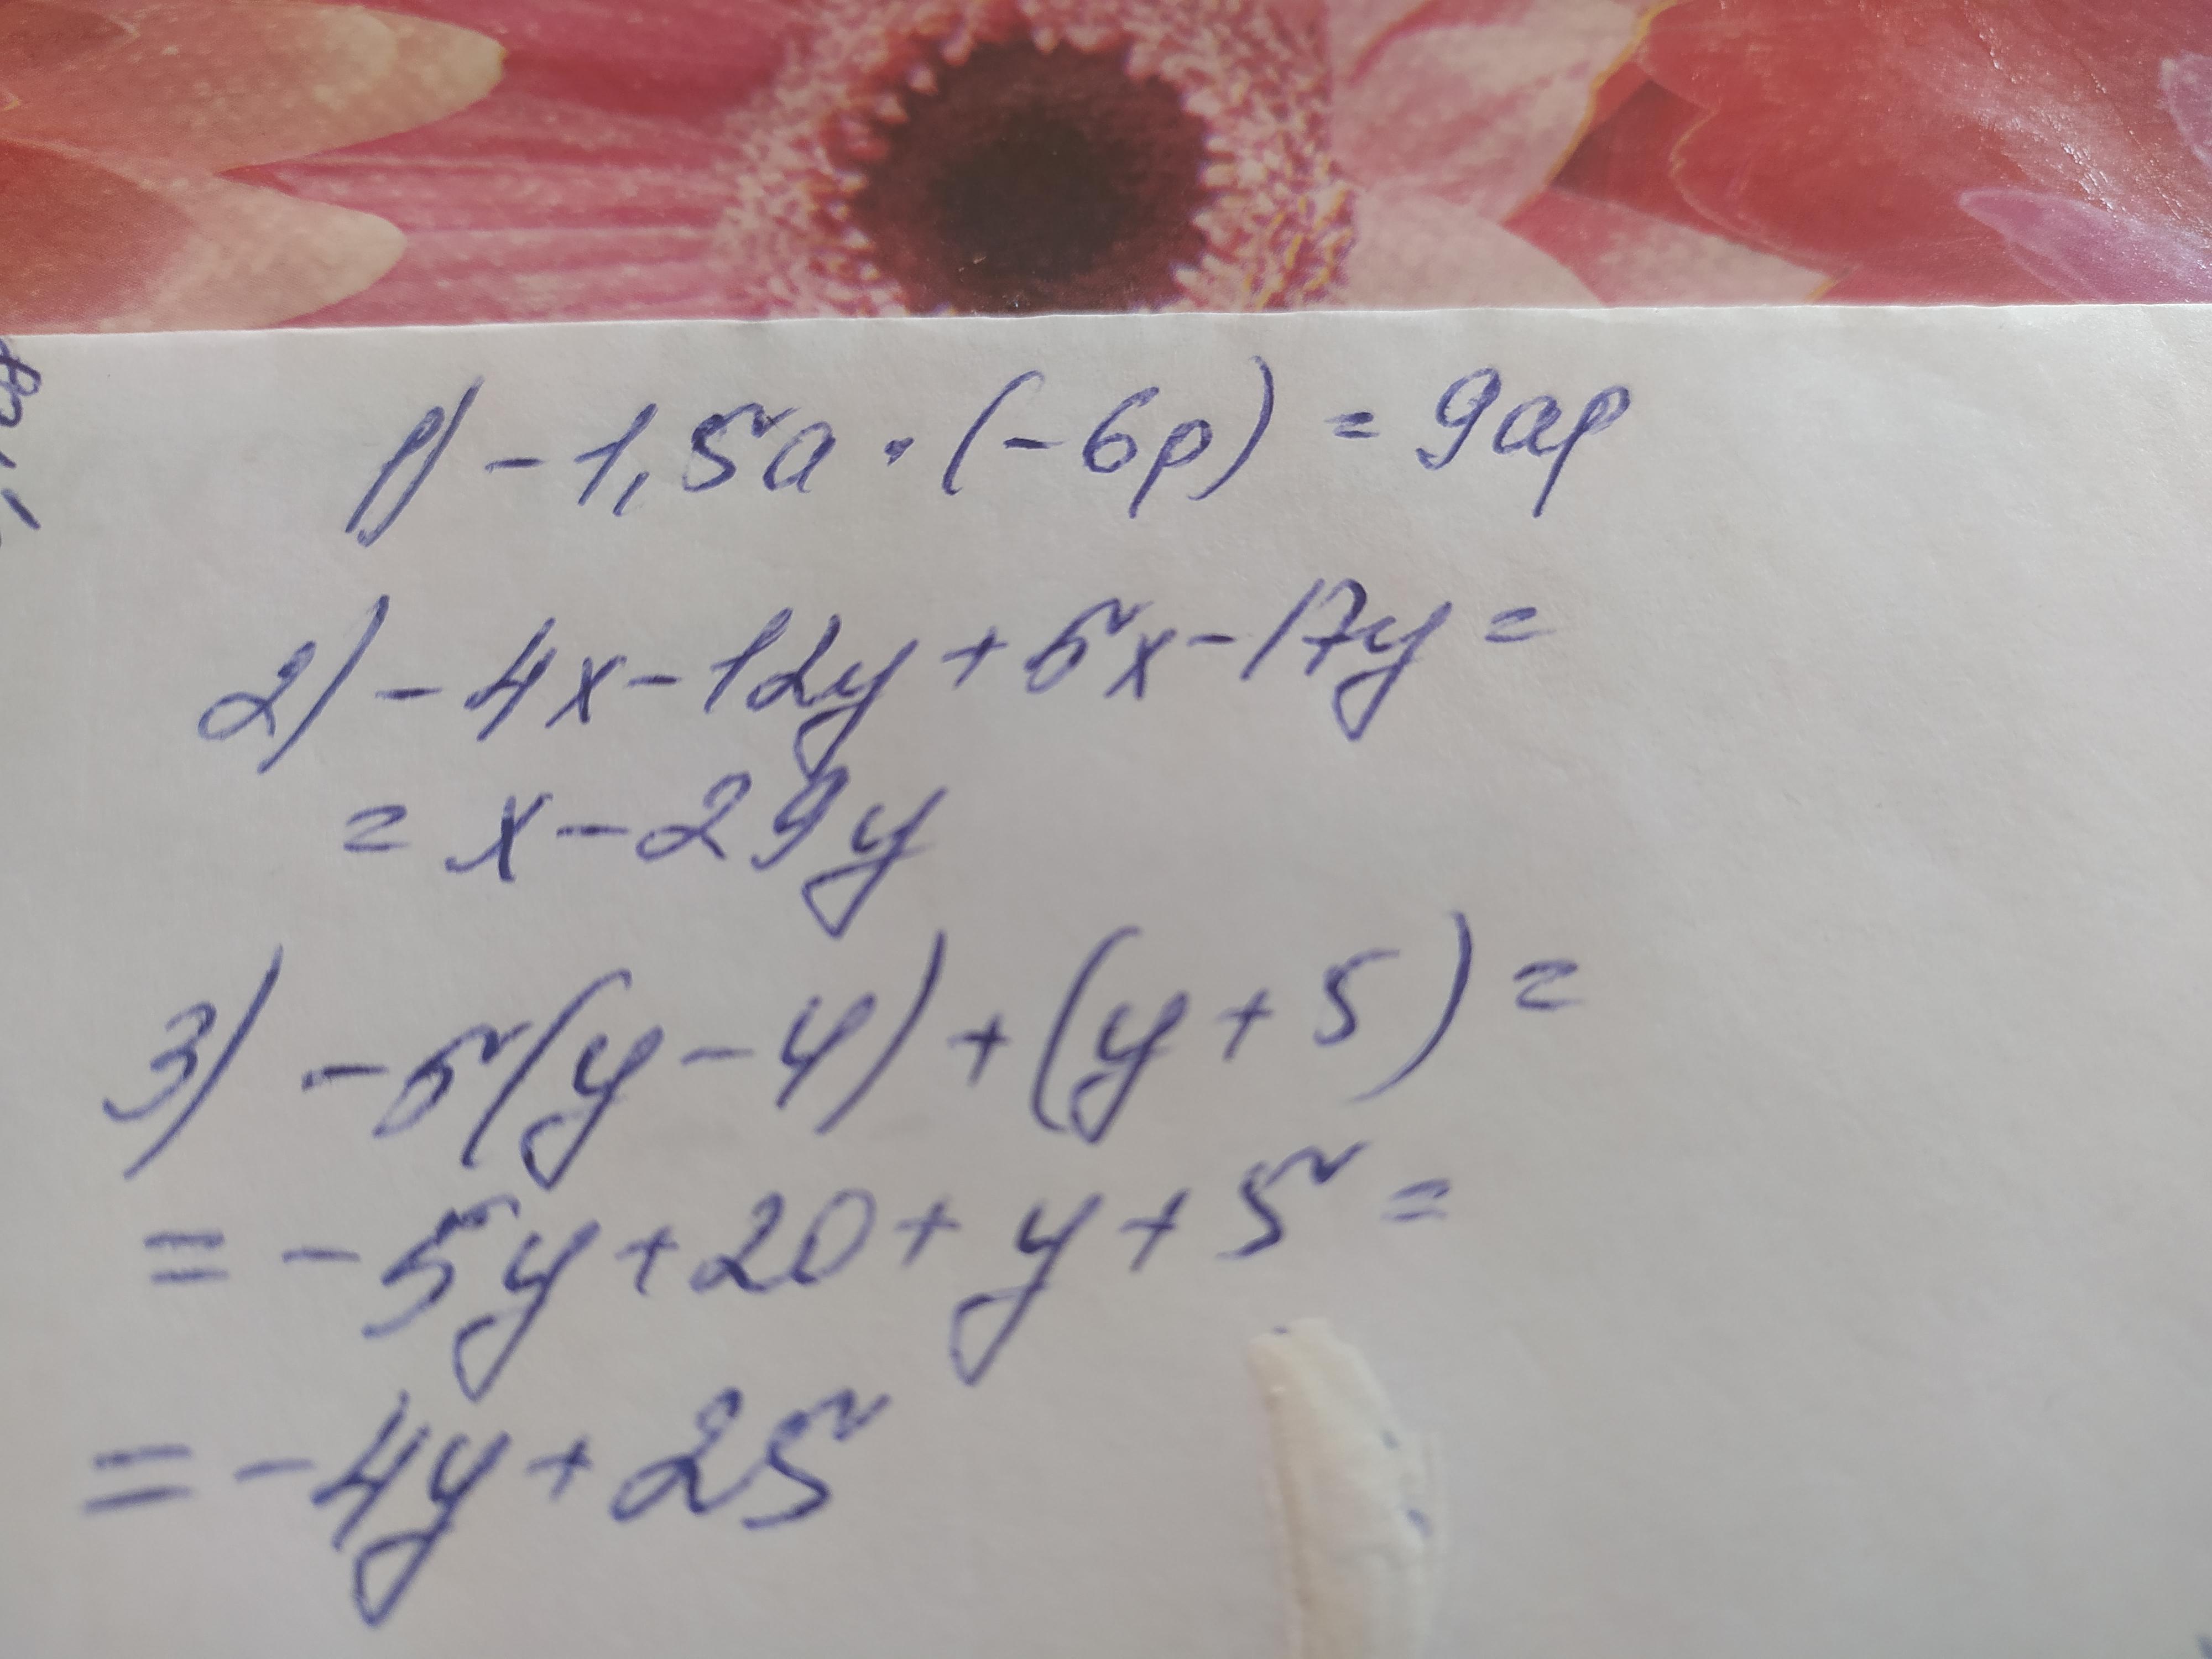 1) -1,5a · (-6p) = 9ap
2) -4x-12y+5x-17y=
= x-29y
3) -5(y-4)+(y+5)=
= -5y+20+y+5=
= -4y+25